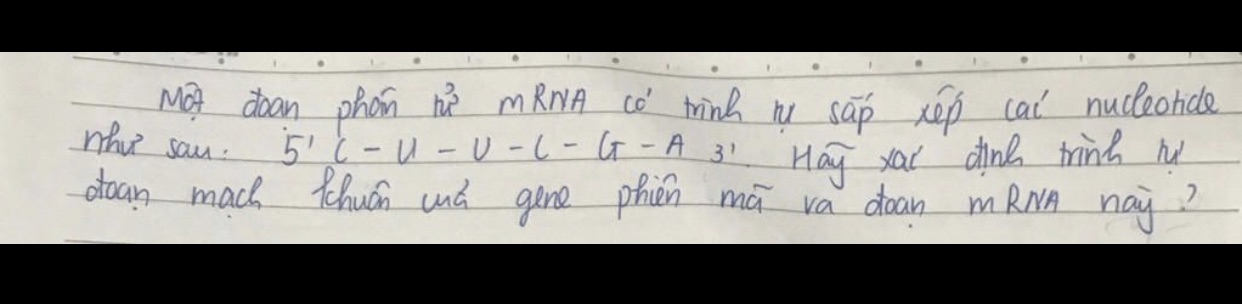 Một đoạn phân tử mRNA có trình tự sắp xếp các nucleotide
như sau: 5' C - U - U - C - G - A 3'. Hãy xác định trình tự
đoạn mạch khuôn của gene phiên mã ra đoạn mRNA này?